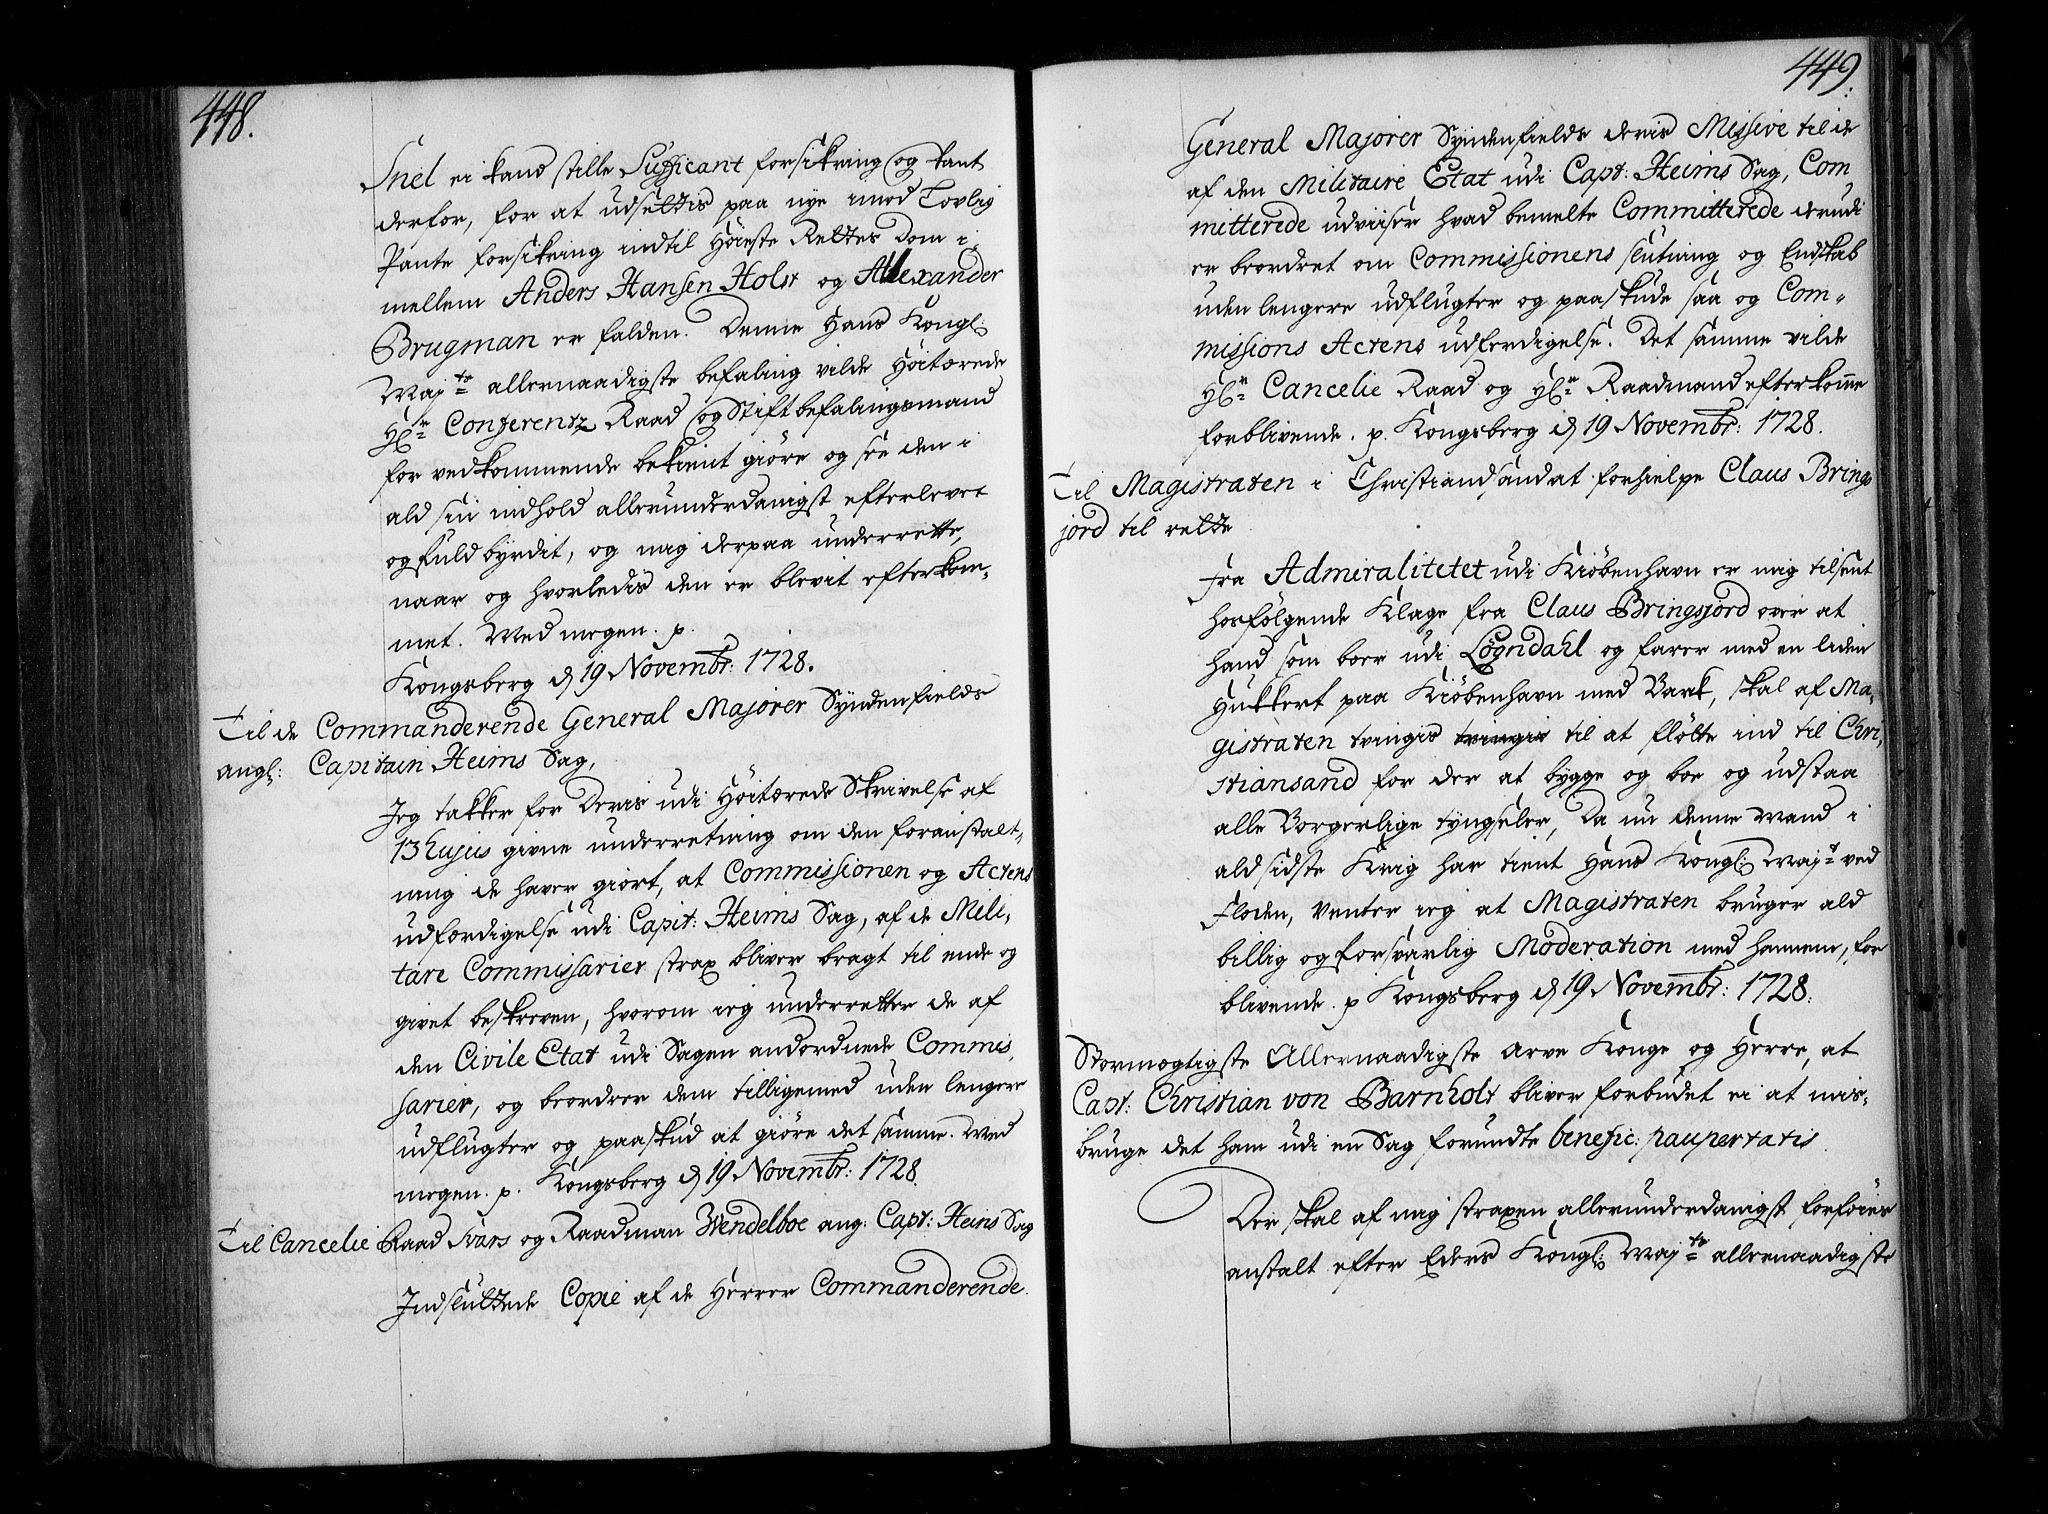 448.
Snel ei kand stille Sufficant forsikring og pant
derfor, for at udsettis paa nye imod Lovlig
Pante forsikring indtil Höieste Rettes Dom i
mellem Anders Hansen Holst og Alexander
Brugman er falden. Denne Hans Kongl:
Maj:ts allernaadigste befaling vilde Höitærede
Hr: Conferentz Raad og Stiftbefalingsmand
for vedkommende bekient giöre og see den i
ald sin indhold allerunderdanigst efterlevet
og fuldbyrdet, og mig derpaa underrette,
naar og hvorledis den er blevet efterkom-
met. Med megen. p.
Kongsberg d 19 Novembr: 1728.
Til de Commanderende General Majorer Syndenfields
angl: Capitain Heims Sag,
Jeg takker for Deris udi Höitærede Skrivelse af
13 hujus givne underretning om den foranstalt-
ning de haver giort, at Commissionen og Actens
udfærdigelse udi Capit: Heims Sag, af de Mili-
tare Commissarier strax bliver bragt til ende og
givet beskreven, hvorom ieg underretter de af
den Civile Etat udi Sagen anordnede Commis-
sarier, og beordrer dem tilligemed uden lengere
udflugter og paaskud at giöre det samme. Med
megen. p. Kongsberg d 19 Novembr: 1728.
Til Cancelie Raad Ivars og Raadman Wendelboe ang: Capt: Heins Sag
Indsluttede Copie af de Herrer Commanderende
449.
General Majorer Syndenfields deris Missive til de
af den Militaire Etat udi Capt: Heims Sag, Com
mitterede udviser hvad bemelte Committerede derudi
er beordret om Commissionens slutning og Endskab
uden lengere udflugter og paaskude saa og Com-
missions Actens udferdigelse. Det samme vilde
Hr: Cancelie Raad og Hr: Raadmand efterkomme
forblivende. p. Kongsberg d 19 Novembr: 1728.
Til Magistraten i Christiandsand at forhielpe Claus Brings
jord til rette
Fra Admiralitetet udi Kiöbenhavn er mig tilsent
hosfölgende Klage fra Claus Bringsjord over at
hand som boer udi Lögndahl og farer med en liden
Hukkert paa Kiöbenhavn med Bark, skal af Ma-
gistraten tvingis tvingis til at flötte ind til Chri-
stiansand for der at bygge og boe og udstaa
alle Borgerlige tyngseler, Da nu denne Mand i
ald sidste Krig har tient Hans Kongl: Maj:t ved
Floden, Venter ieg at Magistraten bruger ald
billig og forsvarlig Moderation med hannem, for
blivende. p Kongsberg d 19 Novembr: 1728.
Stormægtigste Allernaadigste Arve Konge og Herre, at
Capt: Christian von Barnholt bliver forbudet ei at mis-
bruge det ham udi en Sag forundte benefic: paupertatis.
Der skal af mig straxen allerunderdanigst forföies
anstalt efter Eders Kongl: Maj:ts allernaadigste